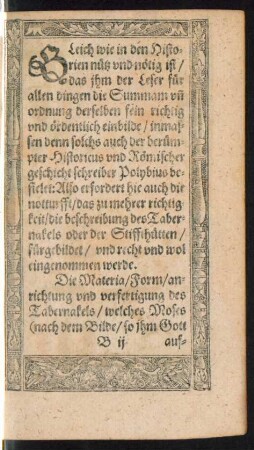 Gleich wie in den Histo-
rien nütz vnd nötig ist/
das jhm der Leser für
allen dingen die Summam vñ
ordnung derselben fein richtig
vnd ördentlich einbilde/ inmas-
sen denn solchs auch der berüm-
pter Historicus vnd Römischer
geschicht schreiber Polybius be-
filet: Also erfordert hie auch die
notturfft/ das zu mehrer richtig-
keit/ die beschreibung des Taber-
nakels oder der Stiffshütten/
fürgebildet/ vnd recht vnd wol
eingenommen werde.
Die Materia/ Form/ an-
richtung vnd verfertigung des
Tabernakels/ welches Moses
(nach dem Bilde/ so jhm Gott
B ij auf-